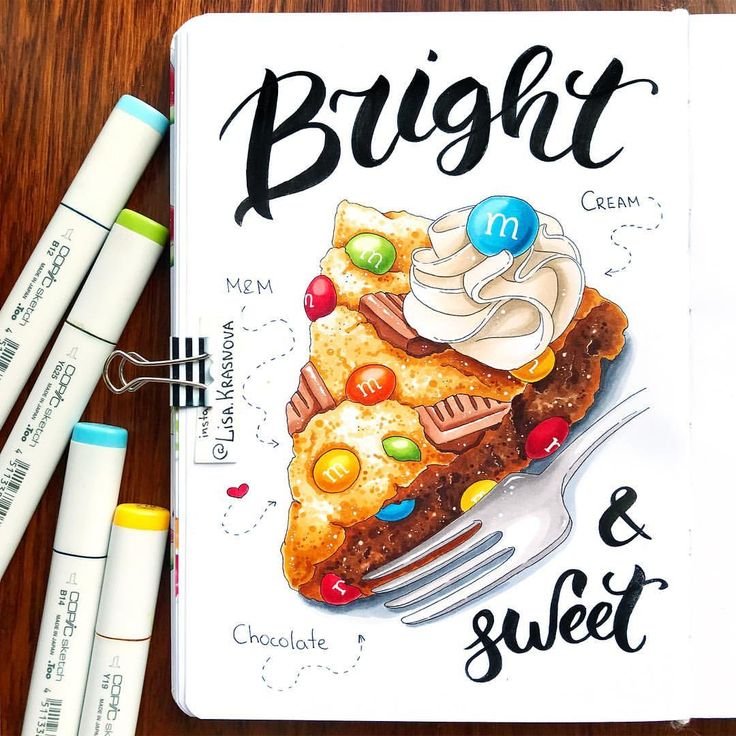 Bright
CREAM
M&M
insta
@LISA.KRASNOVA
Chocolate
&
sweet
m
m
m
m
m
B12
COPIC sketch
MADE IN JAPAN
.Too
YG25
COPIC sketch
MADE IN JAPAN
.Too
B14
COPIC sketch
MADE IN JAPAN
.Too
Y19
COPIC sketch
MADE IN JAPAN
.Too